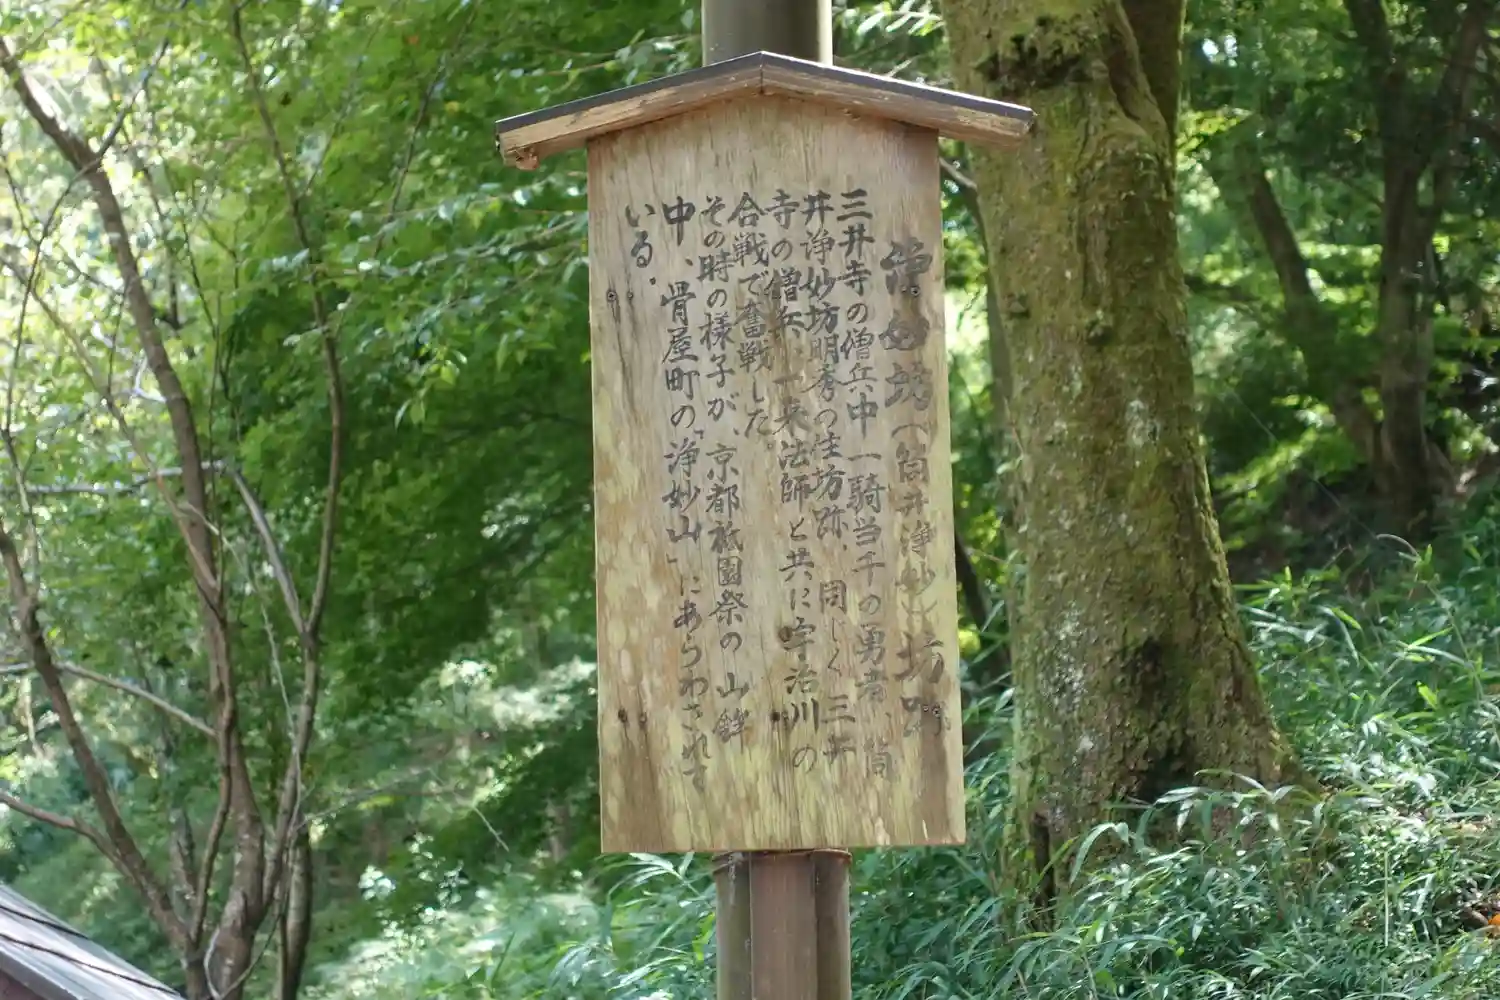 浄妙坊(筒井浄妙)坊跡
三井寺の僧兵中一騎当千の勇者、筒
井浄妙坊明秀の住坊跡、同じく三井
寺の僧兵、一来法師と共に宇治川の
合戦で奮戦した。
その時の様子が、京都祇園祭の山鉾
中、骨屋町の「浄妙山」にあらわされて
いる。